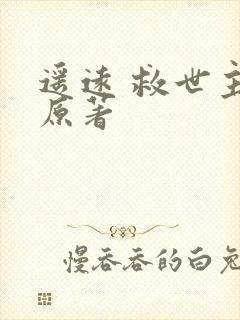 遥远 救世主
原著
慢吞吞的白兔